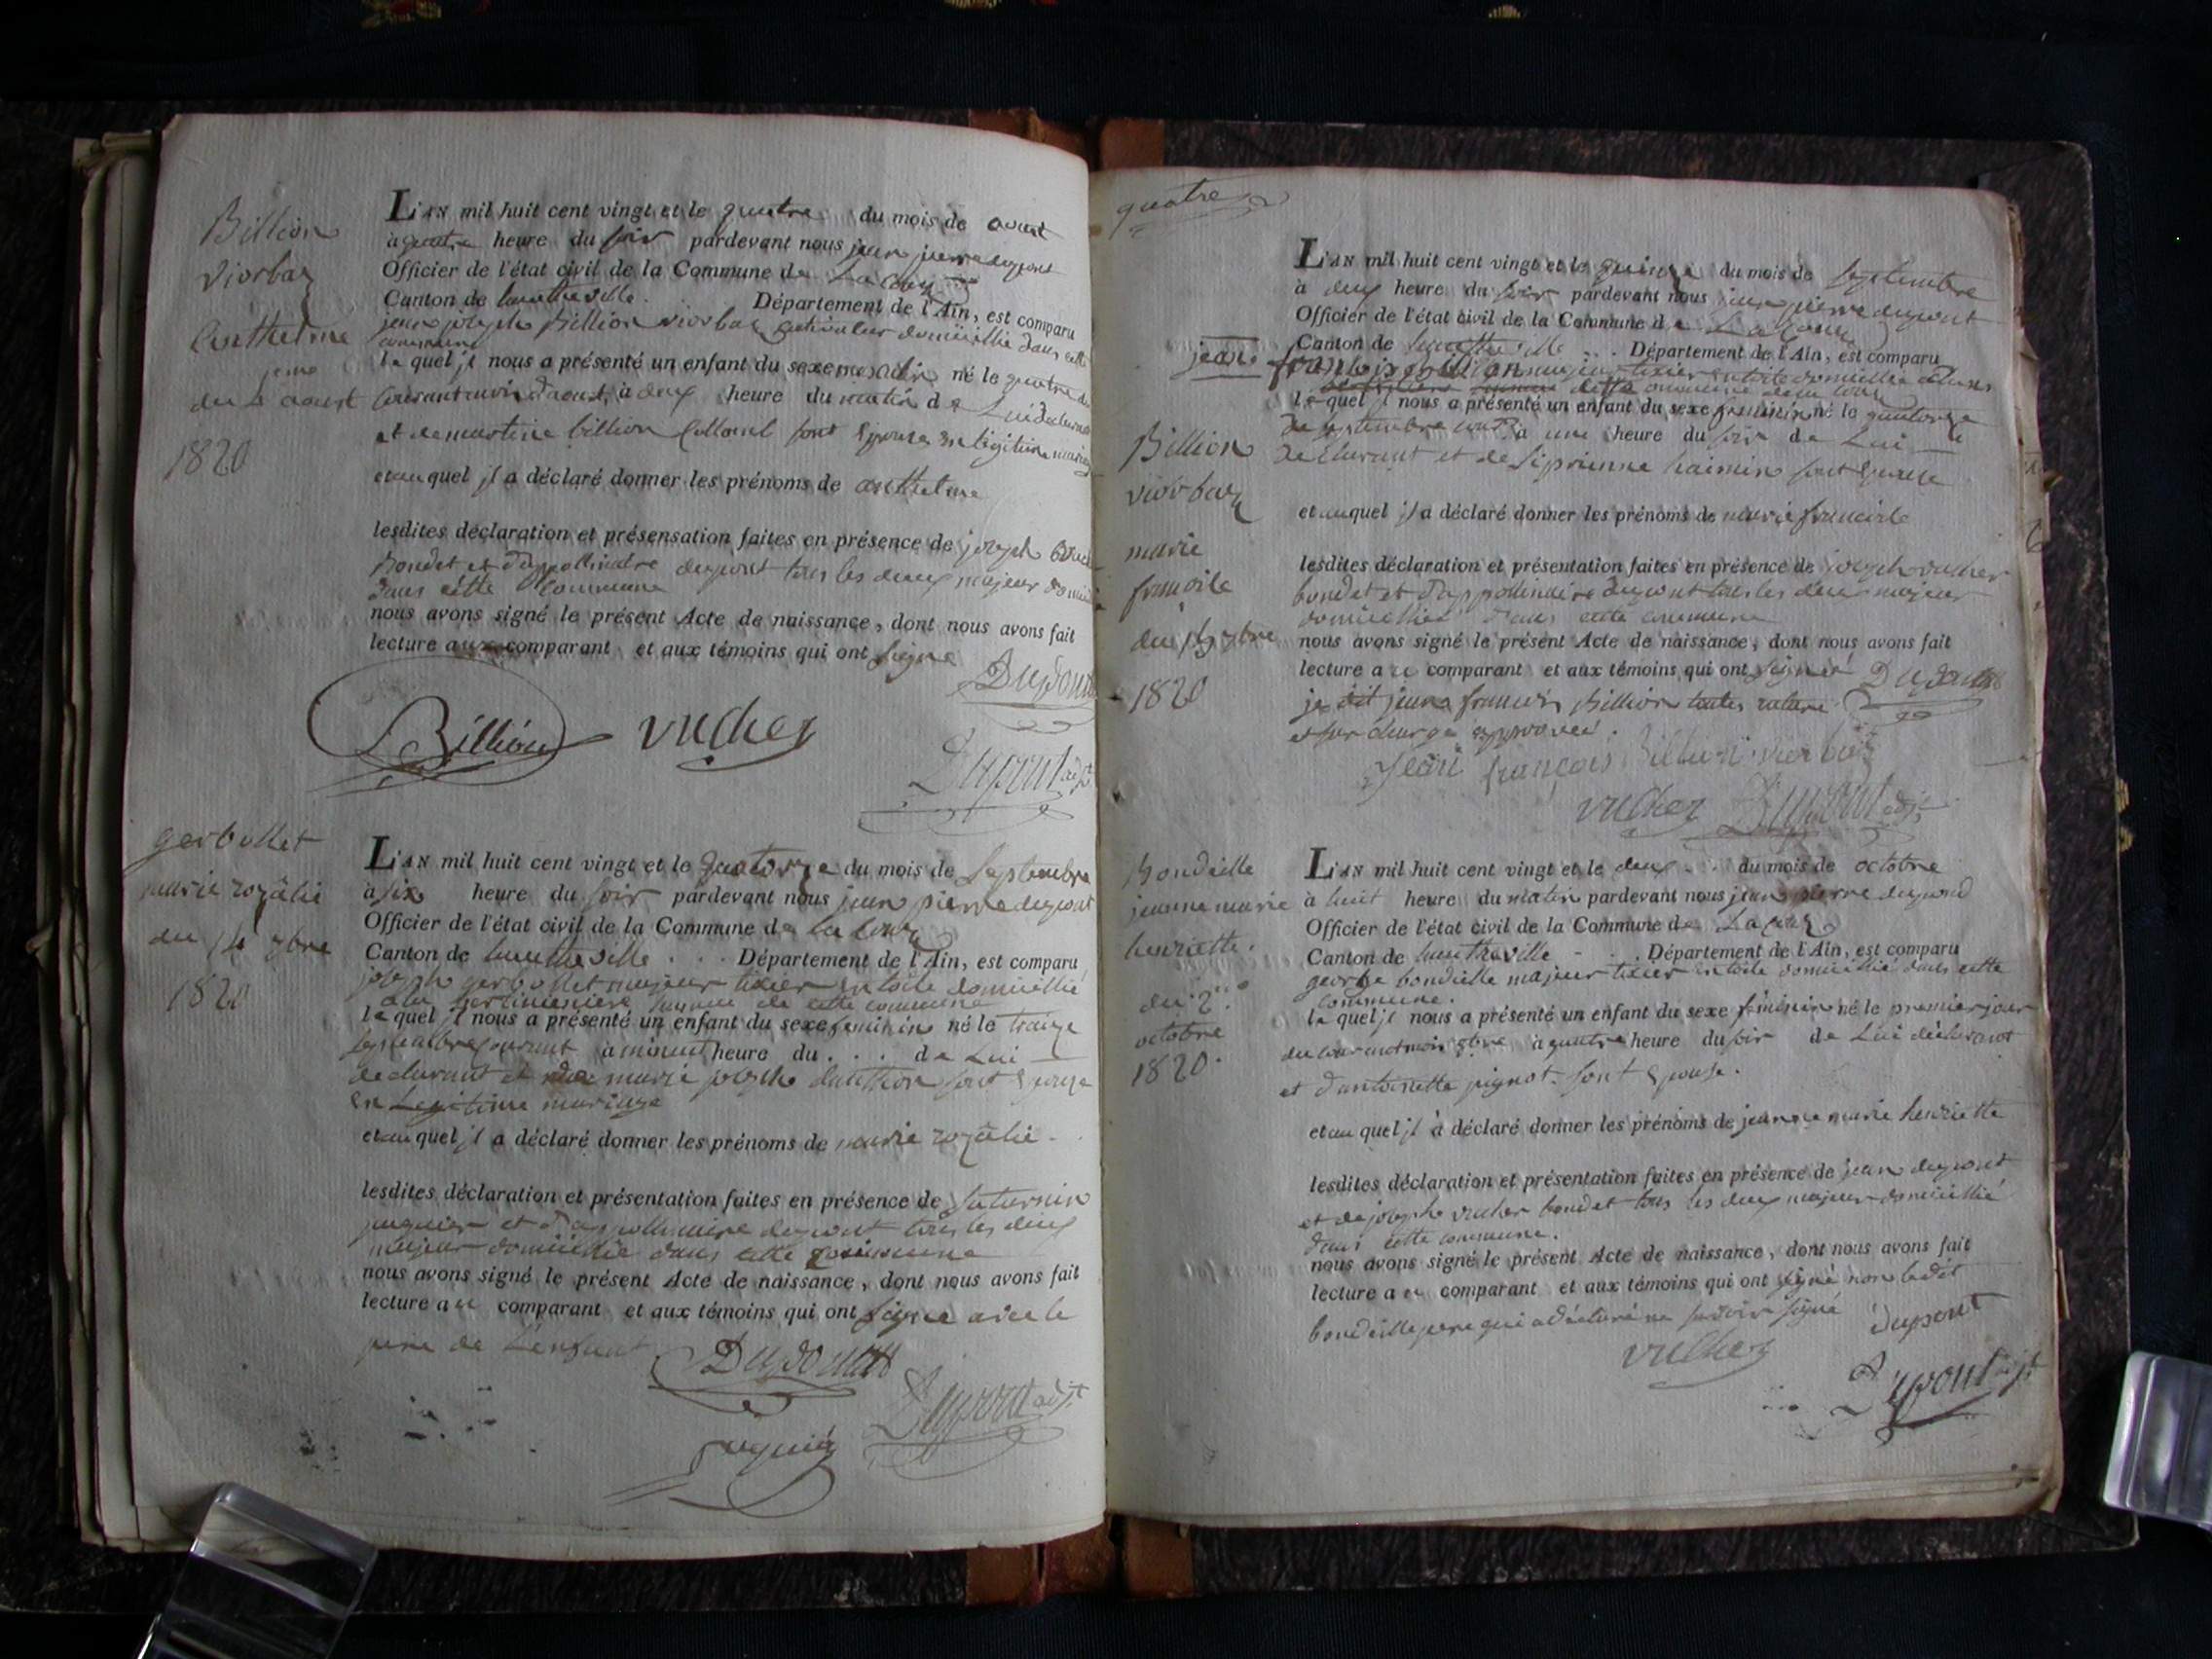 Billion
viorbaz
anthelme
du 4 aoust
1820
L'AN mil huit cent vingt et le quatre du mois de aoust
à quatre heure du soir pardevant nous jean pierre dupont
Officier de l'état civil de la Commune de La Cour
Canton de hauteville. Département de l'Ain, est comparu
jean joseph Billion viorbaz cultivateur domicillié dans cette
commune
lequel jl nous a présenté un enfant du sexe masculin né le quatre du
courant mois d'aoust, à deux heure du matin de Lui declarant
et de martine billion Collomb sont épouse en legitime mariage
et auquel jl a déclaré donner les prénoms de anthelme
lesdites déclaration et présensation faites en présence de joseph vucher
Bondet et d'appollinaire dupont tous les deux majeur domicillié
dans cette Commune
nous avons signé le présent Acte de naissance, dont nous avons fait
lecture aux comparant et aux témoins qui ont signé
Dupont
Billion vucher
Dupont adjt
gerbollet
marie rozâlie
du 14 7bre
1820
L'AN mil huit cent vingt et le quatorze du mois de Septembre
à six heure du soir pardevant nous jean pierre dupont
Officier de l'état civil de la Commune de la Cour
Canton de hauteville . . . Département de l'Ain, est comparu
joseph gerbollet majeur tixier en toile domicillié
hameau de cette commune
lequel jl nous a présenté un enfant du sexe feminin né le traize
septembre courant à minuit heure du . . . de Lui
declarant et de marie joseph sont épouse
en Legitime mariage
et auquel jl a déclaré donner les prénoms de marie rozâlie
lesdites déclaration et présentation faites en présence de saturnin
juquier et d'appollinaire dupont tous les deux
majeur domicillié dans cette commune
nous avons signé le présent Acte de naissance, dont nous avons fait
lecture au comparant et aux témoins qui ont signé avec le
pere de L'enfant
Dupont adjt
quatre
L'AN mil huit cent vingt et le quinze du mois de septembre
à deux heure du soir pardevant nous jean pierre dupont
Officier de l'état civil de la Commune de La Cour
Canton de hauteville . . . Département de l'Ain, est comparu
jean françois billion majeur tixier en toile domicillié dans
cette commune de la Cour
lequel jl nous a présenté un enfant du sexe feminin né le quatorze
de septembre à une heure du soir de Lui
declarant et de siprienne haimin sont épouse
et auquel jl a déclaré donner les prénoms de marie francoile
lesdites déclaration et présentation faites en présence de joseph vucher
bondet et d'appollinaire dupont tous les deux majeur
domicillié dans cette commune
nous avons signé le présent Acte de naissance, dont nous avons fait
lecture au comparant et aux témoins qui ont signé
je dit jean francois Billion toutes rature
et surcharge approuvée.
Jean françois Billion viorbaz
vucher Dupont adjt
Billion
viorbaz
marie
françoile
du 15 7bre
1820
Bondeille
jeanne marie
henriette.
du 2
octobre
1820.
L'AN mil huit cent vingt et le deux . . du mois de octobre
à huit heure du matin pardevant nous jean pierre dupond
Officier de l'état civil de la Commune de La Cour
Canton de hauteville - . . Département de l'Ain, est comparu
george bondeille majeur tixier en toile domicillié dans cette
commune.
lequel jl nous a présenté un enfant du sexe féminin né le premier jour
du courant mois 8bre à quatre heure du soir de Lui déclarant
et d'antoinette pignot. sont épouse.
et auquel jl à déclaré donner les prénoms de jeanne marie henriette
lesdites déclaration et présentation faites en présence de jean dupont
et de joseph vucher bondet tous les deux majeur domicillié
dans cette commune.
nous avons signé le présent Acte de naissance, dont nous avons fait
lecture au comparant et aux témoins qui ont signé non ledit
bondeille pere qui a déclaré ne savoir signé
dupont
vucher
Dupont adjt